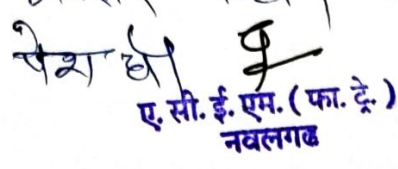 पेश हो।
ए. सी. ई. एम. ( फा. ट्रे. )
नवलगढ